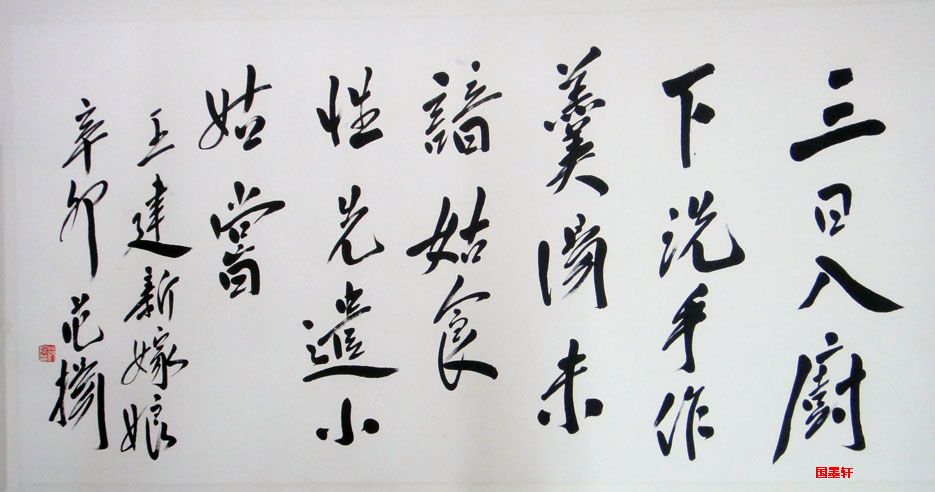 三日入廚
下洗手作
羹湯未
諳姑食
性先遣小
姑嘗
王建新嫁娘
辛卯 范
国墨轩